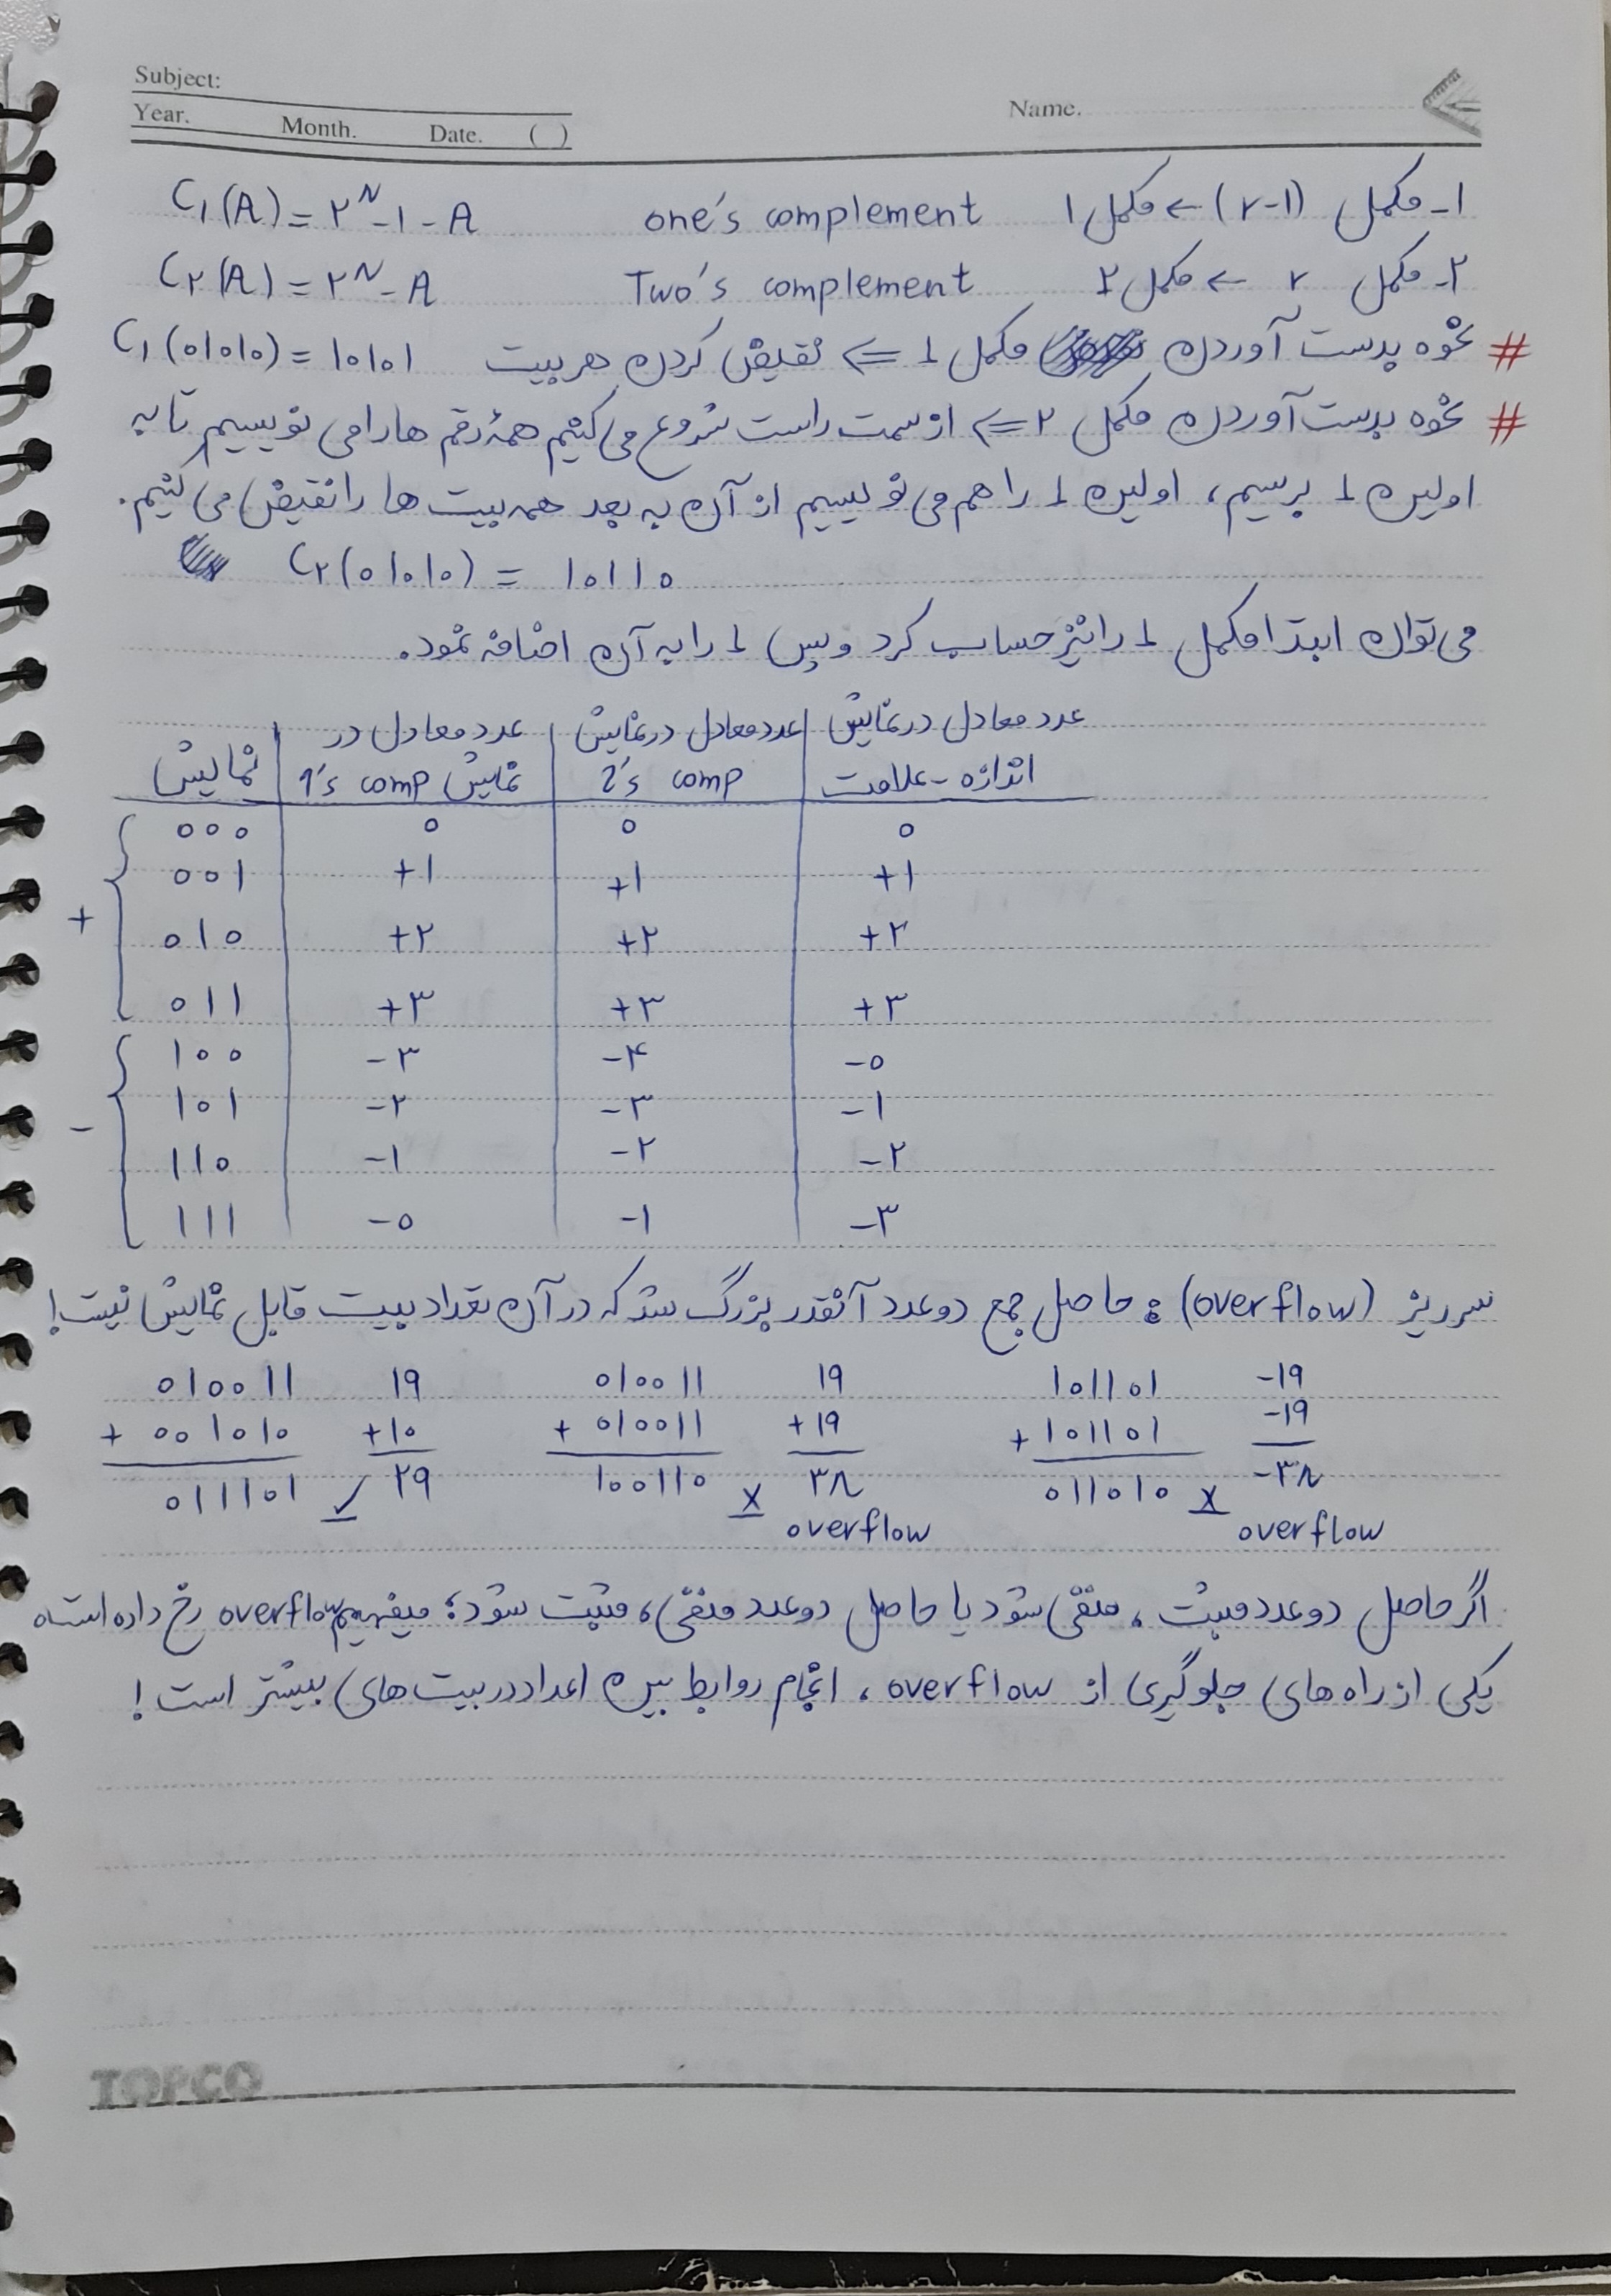 Subject:
Year. Month. Date. ( )
Name.
۱- مکمل (r-۱) ← مکمل ۱ one's complement C۱(A) = ۲^N - ۱ - A
۲- مکمل r ← مکمل ۲ Two's complement C۲(A) = ۲^N - A
# نحوه بدست آوردن مکمل ۱ ⇐ نقیض کردن هر بیت C۱(۰۱۰۱۰) = ۱۰۱۰۱
# نحوه بدست آوردن مکمل ۲ ⇐ از سمت راست شروع می کنیم همهٔ رقم ها را می نویسیم تا به
اولین ۱ برسیم، اولین ۱ را هم می نویسیم از آن به بعد همه بیت ها را نقیض می کنیم.
C۲(۰۱۰۱۰) = ۱۰۱۱۰
می توان ابتدا مکمل ۱ را نیز حساب کرد و پس ۱ را به آن اضافه نمود.
نمایش | عدد معادل در نمایش 1's comp | عدد معادل در نمایش 2's comp | عدد معادل در نمایش اندازه - علامت
+
۰۰۰ | ۰ | ۰ | ۰
۰۰۱ | +۱ | +۱ | +۱
۰۱۰ | +۲ | +۲ | +۲
۰۱۱ | +۳ | +۳ | +۳
-
۱۰۰ | -۳ | -۴ | -۰
۱۰۱ | -۲ | -۳ | -۱
۱۱۰ | -۱ | -۲ | -۲
۱۱۱ | -۰ | -۱ | -۳
سرریز (overflow): حاصل جمع دو عدد آنقدر بزرگ شد که در آن تعداد بیت قابل نمایش نیست!
۰۱۰۰۱۱ ۱۹ ۰۱۰۰۱۱ ۱۹ ۱۰۱۱۰۱ -۱۹
+ ۰۰۱۰۱۰ +۱۰ + ۰۱۰۰۱۱ +۱۹ + ۱۰۱۱۰۱ -۱۹
۰۱۱۱۰۱ ✓ ۲۹ ۱۰۰۱۱۰ x ۳۸ ۰۱۱۰۱۰ x -۳۸
overflow overflow
اگر حاصل دو عدد مثبت، منفی شود یا حاصل دو عدد منفی، مثبت شود؛ میفهیم overflow رخ داده است.
یکی از راه های جلوگیری از overflow، انجام روابط بین اعداد در بیت های بیشتر است!
TOPCO